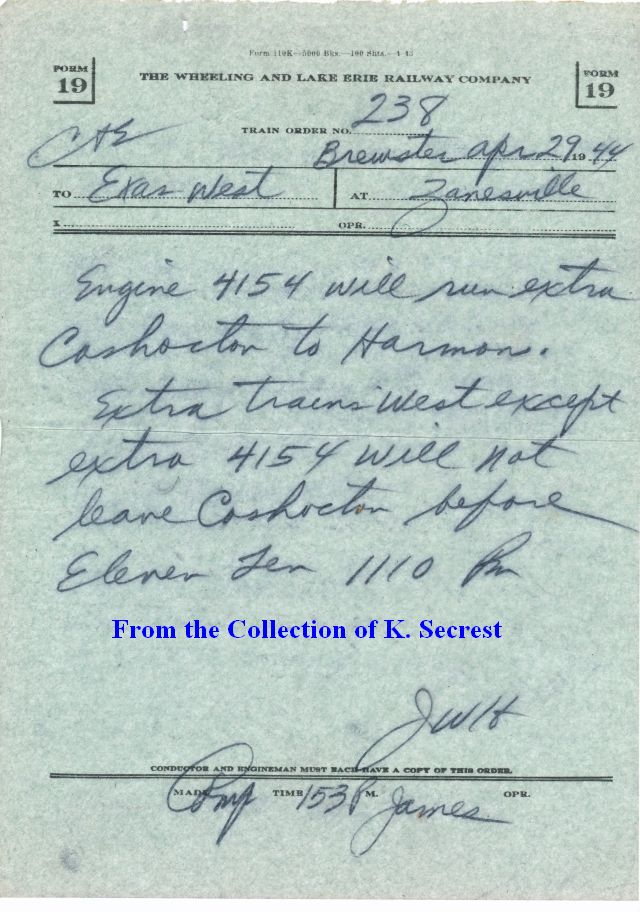 Form 110K—5000 Bks.—100 Shts.—4 43
FORM 19
THE WHEELING AND LAKE ERIE RAILWAY COMPANY
FORM 19
TRAIN ORDER NO. 238
Brewster Apr 29 1944
TO Exas West AT Zanesville
X OPR.
Engine 4154 will run extra
Coshocton to Harmon.
Extra trains West except
extra 4154 will not
leave Coshocton before
Eleven Ten 1110 Pm
From the Collection of K. Secrest
JWH
CONDUCTOR AND ENGINEMAN MUST EACH HAVE A COPY OF THIS ORDER.
MADE Comp TIME 153 P M. James OPR.